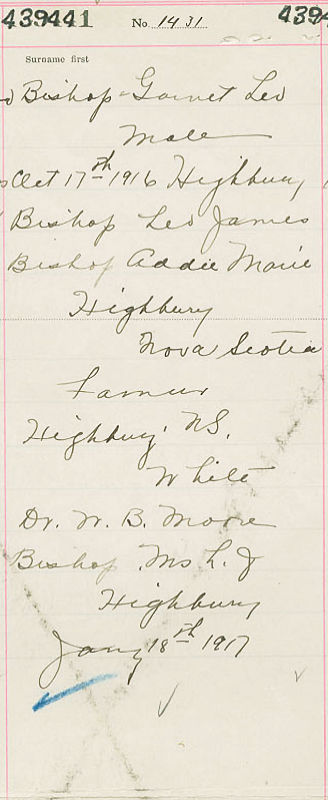 439441 No. 1431 4394
Surname first
Bishop Garnet Leo
Male
Oct 17th 1916 Highbury
Bishop Leo James
Bishop Addie Marie
Highbury
Nova Scotia
Farmer
Highbury N.S.
White
Dr. W. B. Moore
Bishop Ms L. J
Highbury
Jany 18th 1917